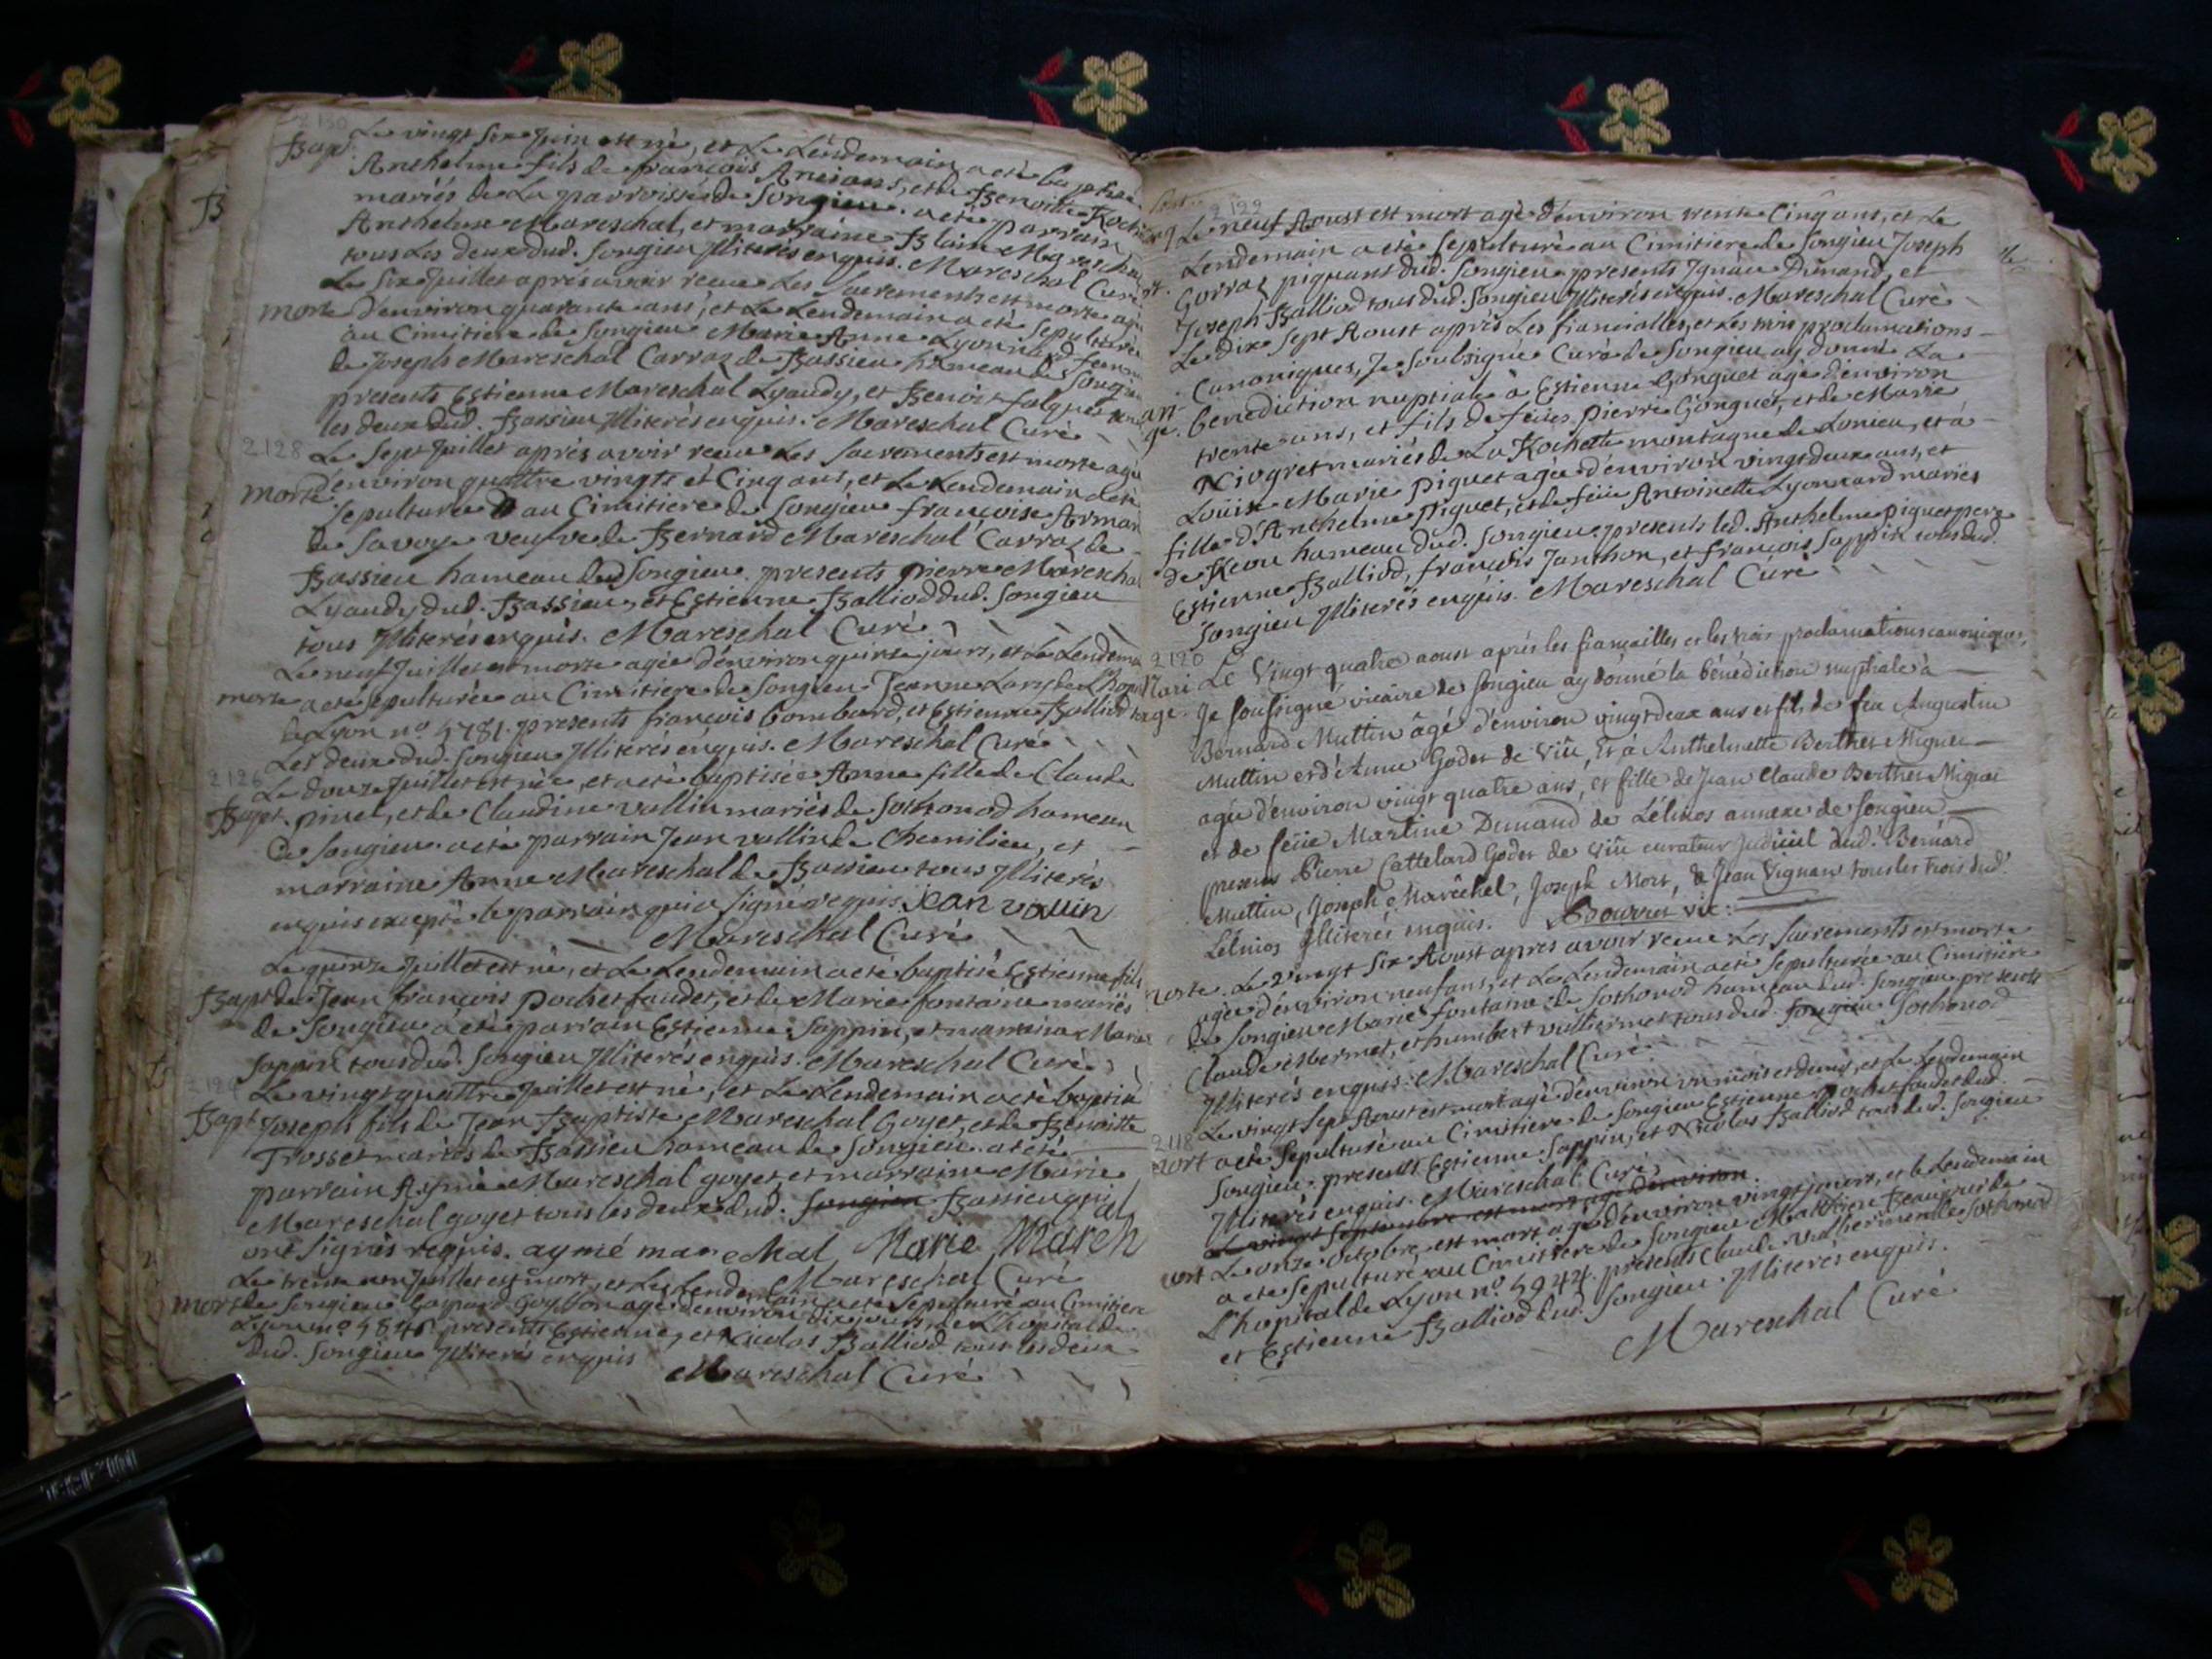 2130
Bapt. Le vingt six Juin est né, et Le Lendemain a eté baptisé
Anthelme fils de françois Ancians, et de Benoitte Roch
mariés de La parroisse de Songieu. a eté parrain
Anthelme Mareschal, et marraine Blaine Mareschal
tous Les deux dud. Songieu Jlliterés enquis. Mareschal Curé
Le Six Juillet aprés avoir receu Les Sacrements est morte agée
morte d'environ quarante ans, et Le Lendemain a eté sepulturée
au Cimitiere de Songieu Marie Anne Lyonnard femme
de Joseph Mareschal Carraz de Bassieu hameau de Songieu
presents Estienne Mareschal Lyaudy, et Benoit falquet tous
les deux dud. Bassieu Jlliterés enquis. Mareschal Curé
2128
Le Sept Juillet aprés avoir receu Les Sacrements est morte agée
morte d'environ quattre vingts et Cinq ans, et Le Lendemain a eté
sepulturée au Cimitiere de Songieu françoise Arman
de Savoye veufve de Bernard Mareschal Carraz de
Bassieu hameau dud Songieu. presents pierre Mareschal
Lyaudy dud. Bassieu, et Estienne Balliod dud. Songieu
tous Jlliterés enquis. Mareschal Curé
Le neuf Juillet est morte agée d'environ quinze jours, et Le Lendemain
morte a eté sepulturée au Cimitiere de Songieu Jeanne Lary de L'hopital
de Lyon no 5781. presents françois Gombard, et Estienne Balliod
Les deux dud. Songieu Jlliterés enquis. Mareschal Curé
2126
Le douze Juillet est née, et a eté baptisée Anne fille de Claude
Bapt. pinet, et de Claudine vallin mariés de Sothonod hameau
de Songieu. a eté parrain Jean vallin de Chemilieu, et
marraine Anne Mareschal de Bassieu tous Jlliterés
enquis excepté le parrain qui a signé requis. jean vallin
Mareschal Curé
Le quinze Juillet est né, et Le Lendemain a eté baptisé Estienne fils
Bapt. de Jean françois pochet faudet, et de Marie fontaine mariés
de Songieu a eté parrain Estienne Sappin, et marraine Marie
Sappin tous dud. Songieu Jlliterés enquis. Mareschal Curé
2124
Le vingt quattre Juillet est né, et Le Lendemain a eté baptisé
Bapt. Joseph fils de Jean Baptiste Mareschal Goyet, et de Benoitte
Trosset mariés de Bassieu hameau de Songieu. a eté
parrain Aymé Mareschal goyet et marraine Marie
Mareschal goyet tous les deux dud. Songieu Bassieu qui
ont signés requis. aymé marechal Marie Marehal
Mareschal Curé
Le trente un Juillet est mort, et Le Lendemain a eté sepulturé au Cimitiere
mort de Songieu Gaspard Goyllon agé d'environ dix jours de L'hopital de
Lyon no 5848 presents Estienne, et Nicolas Balliod tous les deux
dud. Songieu Jlliterés enquis
Mareschal Curé
2122
Le neuf Aoust est mort agé d'environ trente Cinq ans, et Le
Lendemain a eté sepulturé au Cimitiere de Songieu Joseph
Gorraz piquant dud. Songieu presents Jgnace Dunand, et
Joseph Balliod tous dud. Songieu Jlliterés enquis. Mareschal Curé
Le dix Sept Aoust aprés Les fiancialles, et Les trois proclamations
Canoniques, Je soubsigné Curé de Songieu ay donné La
benediction nuptiale à Estienne Gonguet agé d'environ
trente ans, et fils de feüs pierre Gonguet, et de Marie
Niogret mariés de La Rochette montagne de Lonieu, et à
Loüise Marie piquet agée d'environ vingt deux ans, et
fille d'Anthelme piquet, et de feüe Antoinette Lyonnard mariés
de Reou hameau dud. Songieu. presents led. Anthelme piquet pere
Estienne Balliod, françois Janthon, et françois Sappin tous dud.
Songieu Jlliterés enquis. Mareschal Curé
2120
Mari Le Vingt quatre aoust aprés les fiançailles et les trois proclamations canoniques,
age. Je soussigné vicaire de Songieu ay donné la bénédiction nuptiale à
Bernard Muttin âgé d'environ vingt deux ans et fils de feu Augustin
Muttin et d'Anne Godet de Viû, Et à Anthelmette Berthet Mignet
agée d'environ vingt quatre ans, et fille de Jean Claude Berthet Mignet
et de feüe Martine Dunand de Lélinos annexe de Songieu
presens Pierre Cattelard Godet de Viû curateur judiciel dud. Bernard
Muttin, Joseph Maréchel, Joseph Mort, & Jean Vignan tous les trois dud.
Lélinos Jlliterés enquis. Bourret vic:
morte. Le vingt Six Aoust aprés avoir receu Les Sacrements est morte
agée d'environ neuf ans, et Le Lendemain a eté sepulturée au Cimitiere
de Songieu Marie fontaine de Sothonod hameau dud. Songieu presents
Claude Mermet, et humbert vulliermet tous dud. Songieu Sothonod
Jlliterés enquis. Mareschal Curé.
2118
Le vingt Sept Aoust est mort agé d'environ un mois et demis, et Le Lendemain
mort a eté sepulturé au Cimitiere de Songieu Estienne pochet faudet dud.
Songieu. presents Estienne Sappin, et Nicolas Balliod tous dud. Songieu
Jlliterés enquis. Mareschal Curé
Le vingt Septembre est mort agé d'environ
mort Le onze octobre est mort agé d'environ vingt jours, et le Lendemain
a eté sepulturé au Cimitiere de Songieu Matthieu Beaupré de
L'hopital de Lyon no. 5944. presents Claude vulliermet de Sothonod
et Estienne Balliod dud. Songieu. Jlliterés enquis.
Mareschal Curé